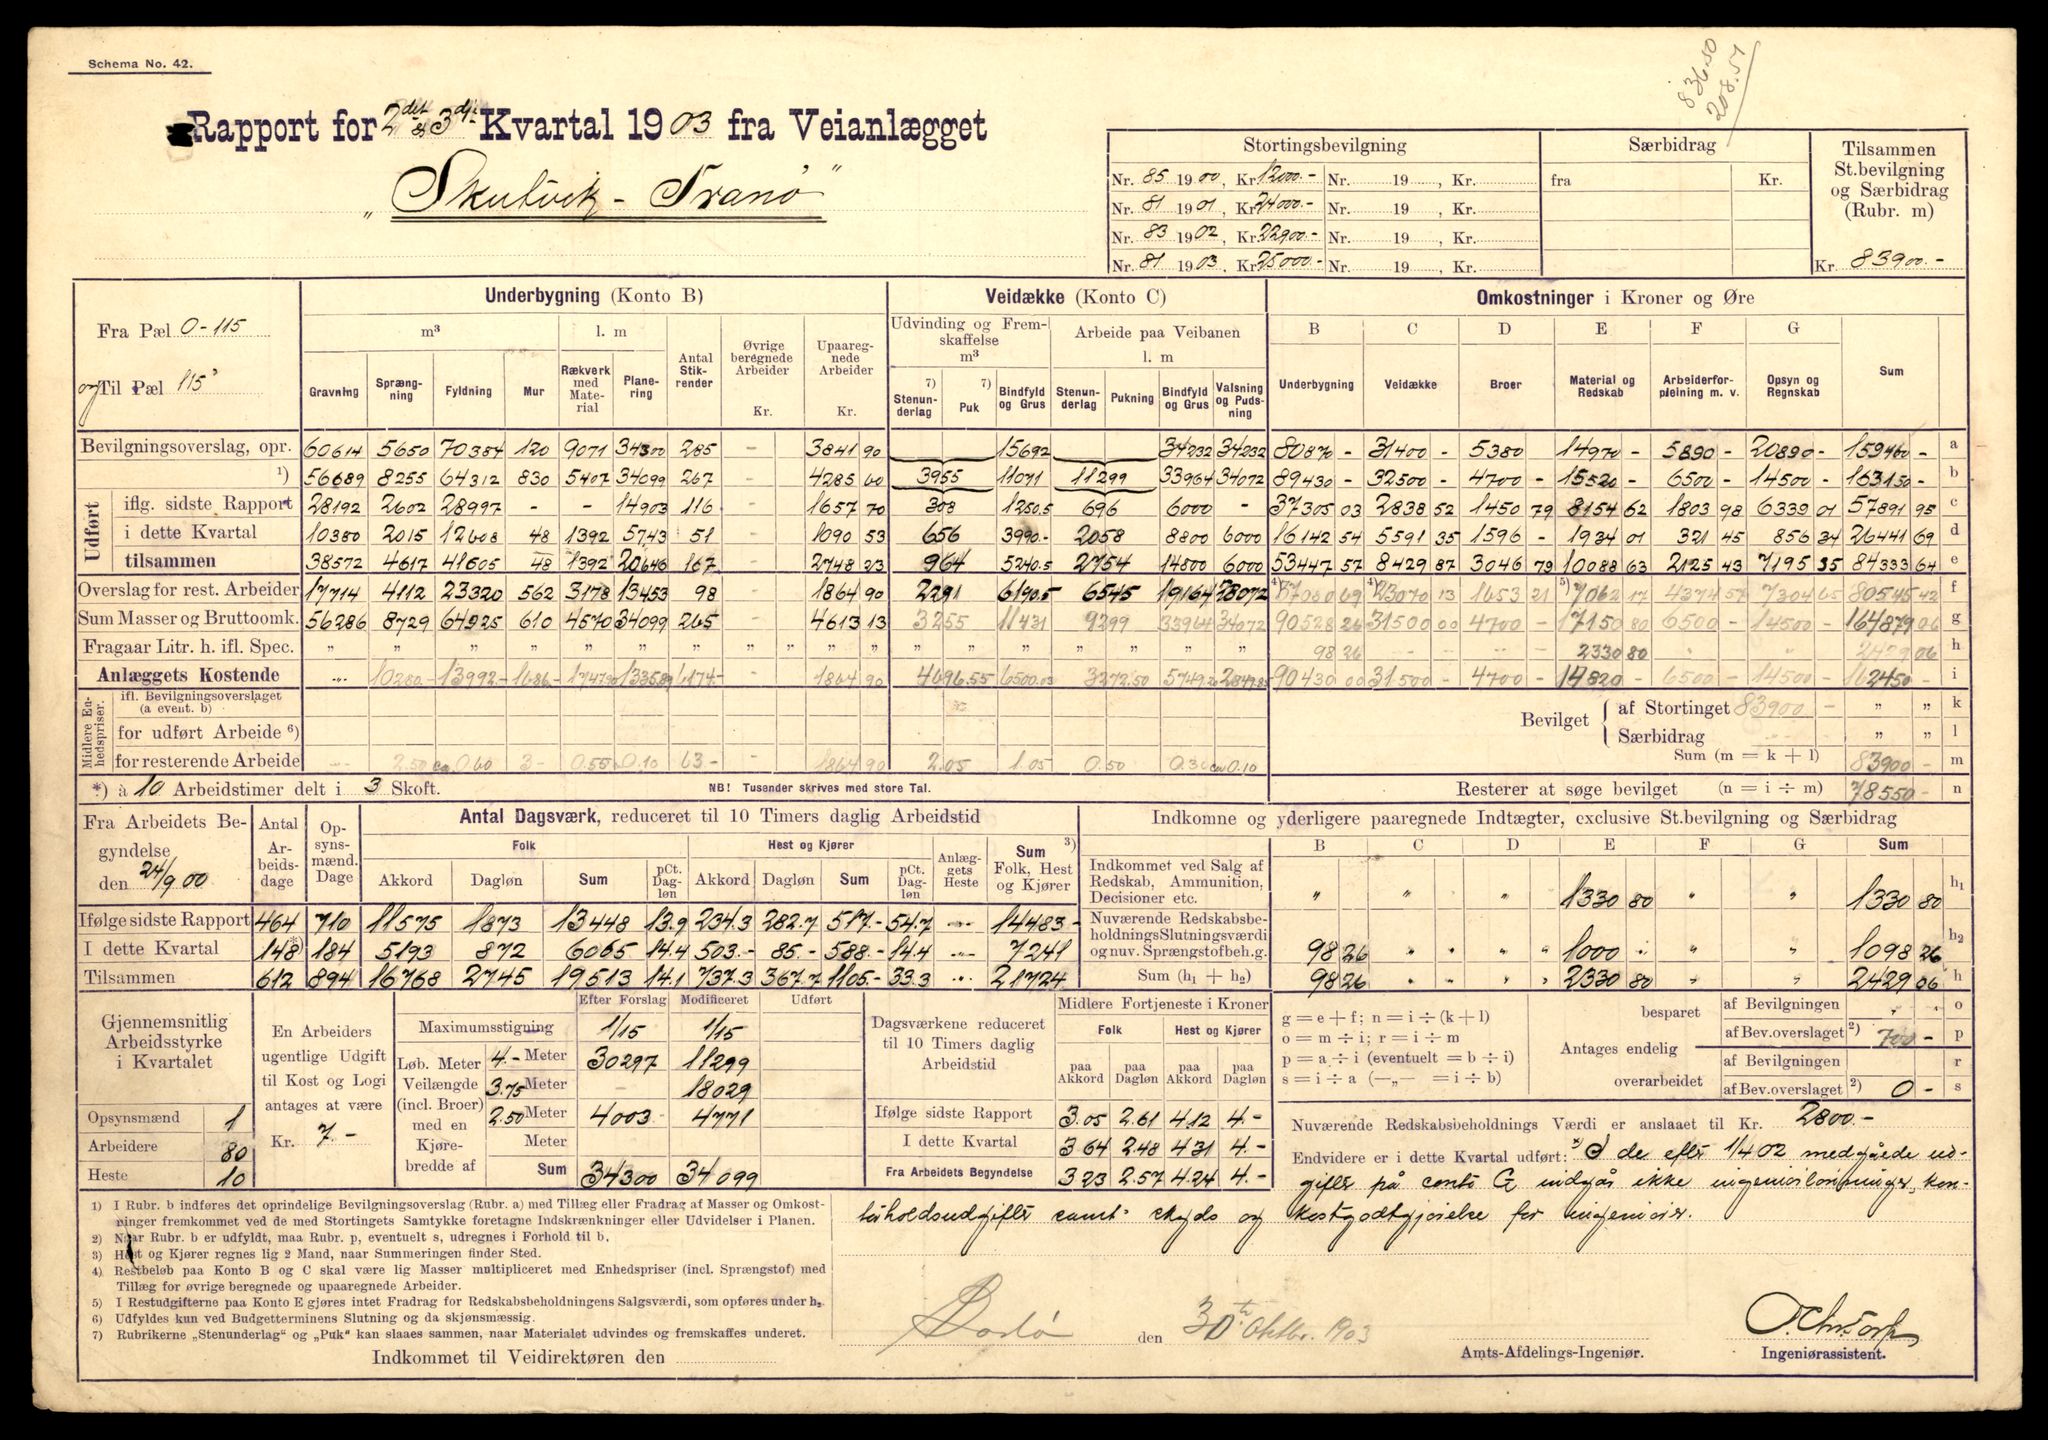 Schema No. 42.
83650
208.51
Rapport for 2det & 3die Kvartal 1903 fra Veianlægget
„Skutvik - Tranö"
Stortingsbevilgning
Særbidrag
Tilsammen St.bevilgning og Særbidrag (Rubr. m)
Nr. 85 1900, Kr. 12000.- Nr. 19 , Kr. fra Kr.
Nr. 81 1901, Kr. 24000.- Nr. 19 , Kr.
Nr. 83 1902, Kr. 22900.- Nr. 19 , Kr.
Nr. 81 1903, Kr. 25000.- Nr. 19 , Kr. Kr. 83900.-
Fra Pæl 0-115
og Til Pæl 115
Underbygning (Konto B) Veidække (Konto C) Omkostninger i Kroner og Øre
m³ l. m Antal Stikrender Øvrige beregnede Arbeider Kr. Upaaregnede Arbeider Kr.
Udvinding og Fremskaffelse m³ Arbeide paa Veibanen l. m
B C D E F G
Gravning Sprængning Fyldning Mur Rækverk med Material Planering
7) Stenunderlag 7) Puk Bindfyld og Grus Stenunderlag Pukning Bindfyld og Grus Valsning og Pudsning
Underbygning Veidække Broer Material og Redskab Arbeiderforpleining m. v. Opsyn og Regnskab Sum
Bevilgningsoverslag, opr. 60614 5650 70384 120 9071 34300 285 - 3841 90 15692 34232 34232 80870 - 31400 - 5380 14970 - 5890 - 20890 - 159400 - a
1) 56689 8255 64312 830 5407 34099 267 - 4285 60 3955 11071 11299 33964 34072 89430 - 32500 - 4700 - 15520 - 6500 - 14500 - 163150 - b
Udført
iflg. sidste Rapport 28192 2602 28997 - - 14903 116 - 1657 70 308 1250.5 696 6000 - 37305 03 2838 52 1450 79 8154 62 1803 98 6339 01 57891 95 c
i dette Kvartal 10380 2015 12608 48 1392 5743 51 - 1090 53 656 3990.- 2058 8800 6000 16142 54 5591 35 1596 - 1934 01 321 45 856 34 26441 69 d
tilsammen 38572 4617 41605 48 1392 20646 167 - 2748 23 964 5240.5 2754 14800 6000 53447 57 8429 87 3046 79 10088 63 2125 43 7195 35 84333 64 e
Overslag for rest. Arbeider 17714 4112 23320 562 3178 13453 98 - 1864 90 2291 6190.5 6545 19164 28072 4) 37080 69 4) 23070 13 1653 21 5) 7062 17 4374 57 7304 65 80545 42 f
Sum Masser og Bruttoomk. 56286 8729 64925 610 4570 34099 265 - 4613 13 3255 11431 9299 33964 34072 90528 26 31500 00 4700 - 17150 80 6500 - 14500 - 164879 06 g
Fragaar Litr. h. ifl. Spec. „ „ „ „ „ „ „ „ „ „ „ „ „ „ „ „ „ 98 26 2330 80 2429 06 h
Anlæggets Kostende 10280.- 13992.- 1686.- 6174.- 1864 90 4696.55 6500.03 3272.50 90430 00 31500 - 4700 - 14820 - 6500 - 14500 - 162450 - i
Midlere Enhedspriser.
ifl. Bevilgningsoverslaget (a event. b)
for udført Arbeide 6)
for resterende Arbeide 2.50 0.60 3- 0.55 0.10 63.- 1864 90 2.05 1.05 0.50 0.30 0.10
Bevilget af Stortinget 83900 - „ „ k
Særbidrag „ „ l
Sum (m = k + l) 83900 - m
*) à 10 Arbeidstimer delt i 3 Skoft.
NB! Tusender skrives med store Tal.
Resterer at søge bevilget (n = i ÷ m) 78550 - n
Fra Arbeidets Begyndelse den 24/9 00
Antal Arbeidsdage
Opsynsmænd. Dage
Antal Dagsværk, reduceret til 10 Timers daglig Arbeidstid
Folk Hest og Kjører Anlæggets Heste Sum 3) Folk, Hest og Kjører
Akkord Dagløn Sum pCt. Dagløn Akkord Dagløn Sum pCt. Dagløn
Ifølge sidste Rapport 464 710 11575 1873 13448 13.9 234.3 282.7 517.- 54.7 14483-
I dette Kvartal 148*) 184 5193 872 6065 14.4 503.- 85.- 588.- 14.4 7241
Tilsammen 612 894 16768 2745 19513 14.1 737.3 367.7 1105.- 33.3 21724
Indkomne og yderligere paaregnede Indtægter, exclusive St.bevilgning og Særbidrag
B C D E F G Sum
Indkommet ved Salg af Redskab, Ammunition, Decisioner etc. „ „ „ 1330 80 „ „ 1330 80 h₁
Nuværende Redskabsbeholdnings Slutningsværdi og nuv. Sprængstofbeh.g. 98 26 „ „ „ „ 1000 „ „ „ 1098 26 h₂
Sum (h₁ + h₂) 98 26 „ „ „ „ 2330 80 „ „ 2429 06 h
Gjennemsnitlig Arbeidsstyrke i Kvartalet
Opsynsmænd 1
Arbeidere 80
Heste 10
En Arbeiders ugentlige Udgift til Kost og Logi antages at være
Kr. 7.-
Efter Forslag Modificeret Udført
Maximumsstigning 1/15 1/15
Løb. Meter Veilængde (incl. Broer) med en Kjørebredde af
4.- Meter 30297 11299
3.75 Meter - 18029
2.50 Meter 4003 4771
Meter
Sum 34300 34099
Dagsværkene reduceret til 10 Timers daglig Arbeidstid
Midlere Fortjeneste i Kroner
Folk Hest og Kjører
paa Akkord paa Dagløn paa Akkord paa Dagløn
Ifølge sidste Rapport 3.05 2.61 4.12 4.-
I dette Kvartal 3 64 2.48 4 31 4.-
Fra Arbeidets Begyndelse 323 2.57 4.24 4.-
g = e + f; n = i ÷ (k + l)
o = m ÷ i; r = i ÷ m
p = a ÷ i (eventuelt = b ÷ i)
s = i ÷ a (—„— = i ÷ b)
Antages endelig
besparet af Bevilgningen „ „ o
af Bev.overslaget 2) 700 - p
overarbeidet af Bevilgningen r
af Bev.overslaget 2) 0 - s
Nuværende Redskabsbeholdnings Værdi er anslaaet til Kr. 2800.-
Endvidere er i dette Kvartal udført: *) I de efter 1/4 02 medgåede ud-
gifter på conto G indgår ikke ingeniörlönninger, kon-
torholdsudgifter samt skyds og kostgodtgjörelse for ingeniör.
1) I Rubr. b indføres det oprindelige Bevilgningsoverslag (Rubr. a) med Tillæg eller Fradrag af Masser og Omkostninger fremkommet ved de med Stortingets Samtykke foretagne Indskrænkninger eller Udvidelser i Planen.
2) Naar Rubr. b er udfyldt, maa Rubr. p, eventuelt s, udregnes i Forhold til b.
3) Hest og Kjører regnes lig 2 Mand, naar Summeringen finder Sted.
4) Restbeløb paa Konto B og C skal være lig Masser multipliceret med Enhedspriser (incl. Sprængstof) med Tillæg for øvrige beregnede og upaaregnede Arbeider.
5) I Restudgifterne paa Konto E gjøres intet Fradrag for Redskabsbeholdningens Salgsværdi, som opføres under h₂
6) Udfyldes kun ved Budgetterminens Slutning og da skjønsmæssig.
7) Rubrikerne „Stenunderlag" og „Puk" kan slaaes sammen, naar Materialet udvindes og fremskaffes underet.
Indkommet til Veidirektøren den
Bodö den 30te Oktbr. 1903
Amts-Afdelings-Ingeniør.
Ingeniørassistent.